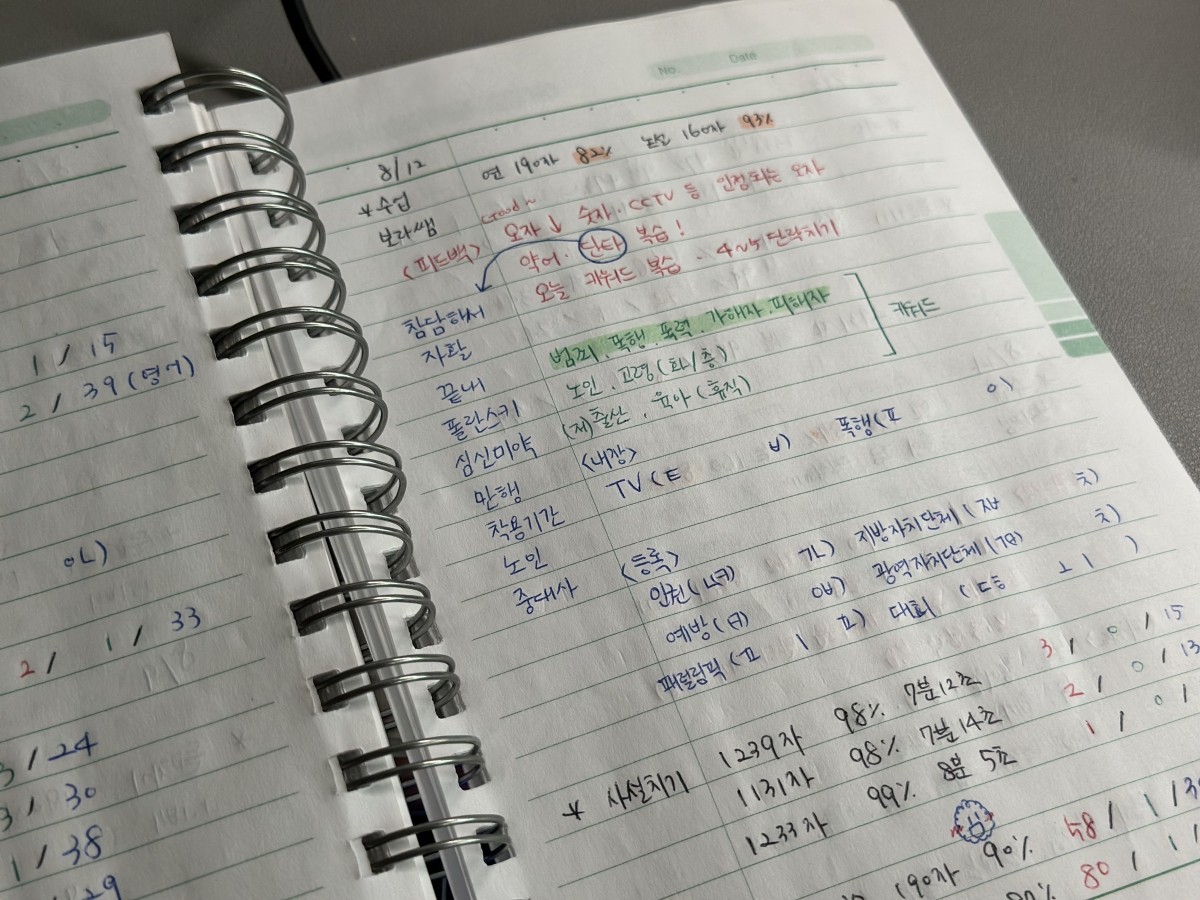 1 / 15
2 / 39 (영어)
아ㄴ)
2 / 1 / 33
3 / 24
3 / 30
1 / 38
29
No. Date
8/12 연 190자 82% 논설 160자 93%
*수업 Good~
보라쌤 오자↓ 숫자·CCTV 등 인정되는 오자
<피드백> 약어·단타 복습!
오늘 키워드 복습 · 4~5단락치기
참담해서
자활 범죄.폭행.폭력.가해자.피해자
키워드
끝내 노인.고령(화/층)
폴란스키 (저)출산.육아(휴직)
심신미약 <내장>
만행 TV(ㅌ ㅂ) 폭행(ㅍ
착용기간
노인 <등록>
중대사 인천( 지방자치단체(
예방( 광역자치단체(
패럴림픽(ㅍ ㅣ ㅍ) 대회(
* 사설치기 1239자 98% 7분12초 3 / 0 / 15
1131자 98% 7분14초 2 / 0 / 13
1233자 99% 8분 5초 1 / 0 /
190자 90% 58 / 1 /
80 / 1 /